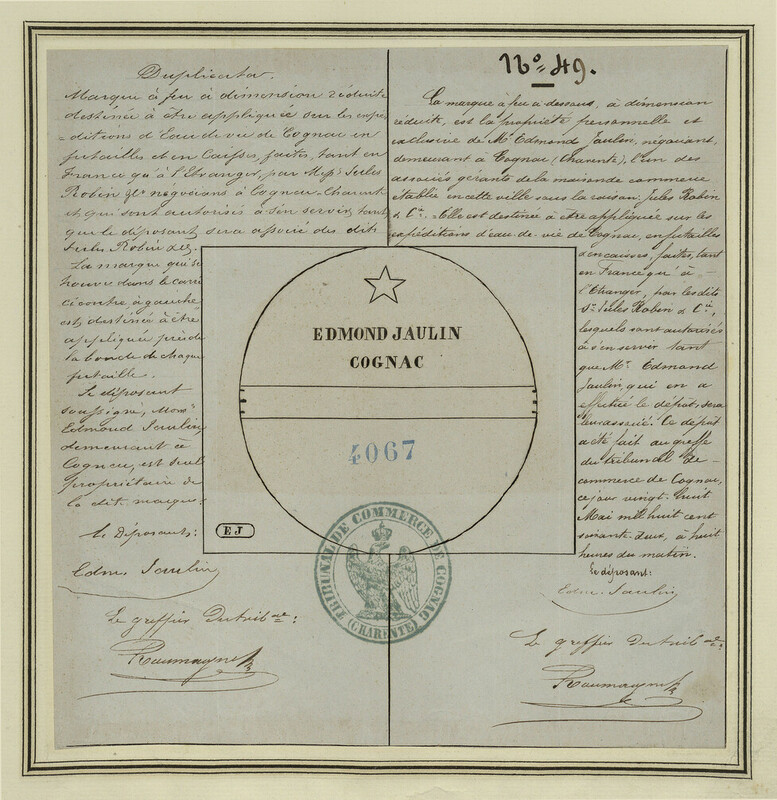 Duplicata.
Marque à feu à dimension réduite
destinée à être appliquée sur les expé
ditions d'Eau de vie de Cognac en
futailles et en Caisses, faites, tant en
France qu'à l'Etranger, par Mess. Jules
Robin & Ce négociants à Cognac Charente
et qui sont autorisés à s'en servir, tant
que le déposant sera associé des dits
Jules Robin & Ce.
La marque qui se
trouve dans le carré
ci contre à gauche
est destinée à être
appliquée près de
la bonde de chaque
futaille.
Le déposant
soussigné, Monsr
Edmond Jaulin,
demeurant à
Cognac, est seul
propriétaire de
la dite marque.
Le Déposant:
Edm. Jaulin
Le greffier du trib.al:
No. 49.
La marque à feu ci dessous, à dimension
réduite, est la propriété personnelle et
exclusive de Mr. Edmond Jaulin, négociant,
demeurant à Cognac (Charente), l'un des
associés gérants de la maison de commerce
établie en cette ville sous la raison: Jules Robin
& Cie. Elle est destinée à être appliquée sur les
expéditions d'eau-de-vie de Cognac, en futailles
et en caisses, faites, tant
en France qu'à
l'Etranger, par les dits
Srs Jules Robin & Cie,
lesquels sont autorisés
à s'en servir tant
que Mr. Edmond
Jaulin, qui en a
effectué le dépôt, sera
leur associé. Ce dépôt
a été fait au greffe
du tribunal de
commerce de Cognac,
ce jour vingt-huit
Mai mil huit cent
soixante-deux, à huit
heures du matin.
Le déposant:
Edm. Jaulin
Le greffier du trib.al:
EDMOND JAULIN
COGNAC
4067
EJ
TRIBUNAL DE COMMERCE DE COGNAC
(CHARENTE)